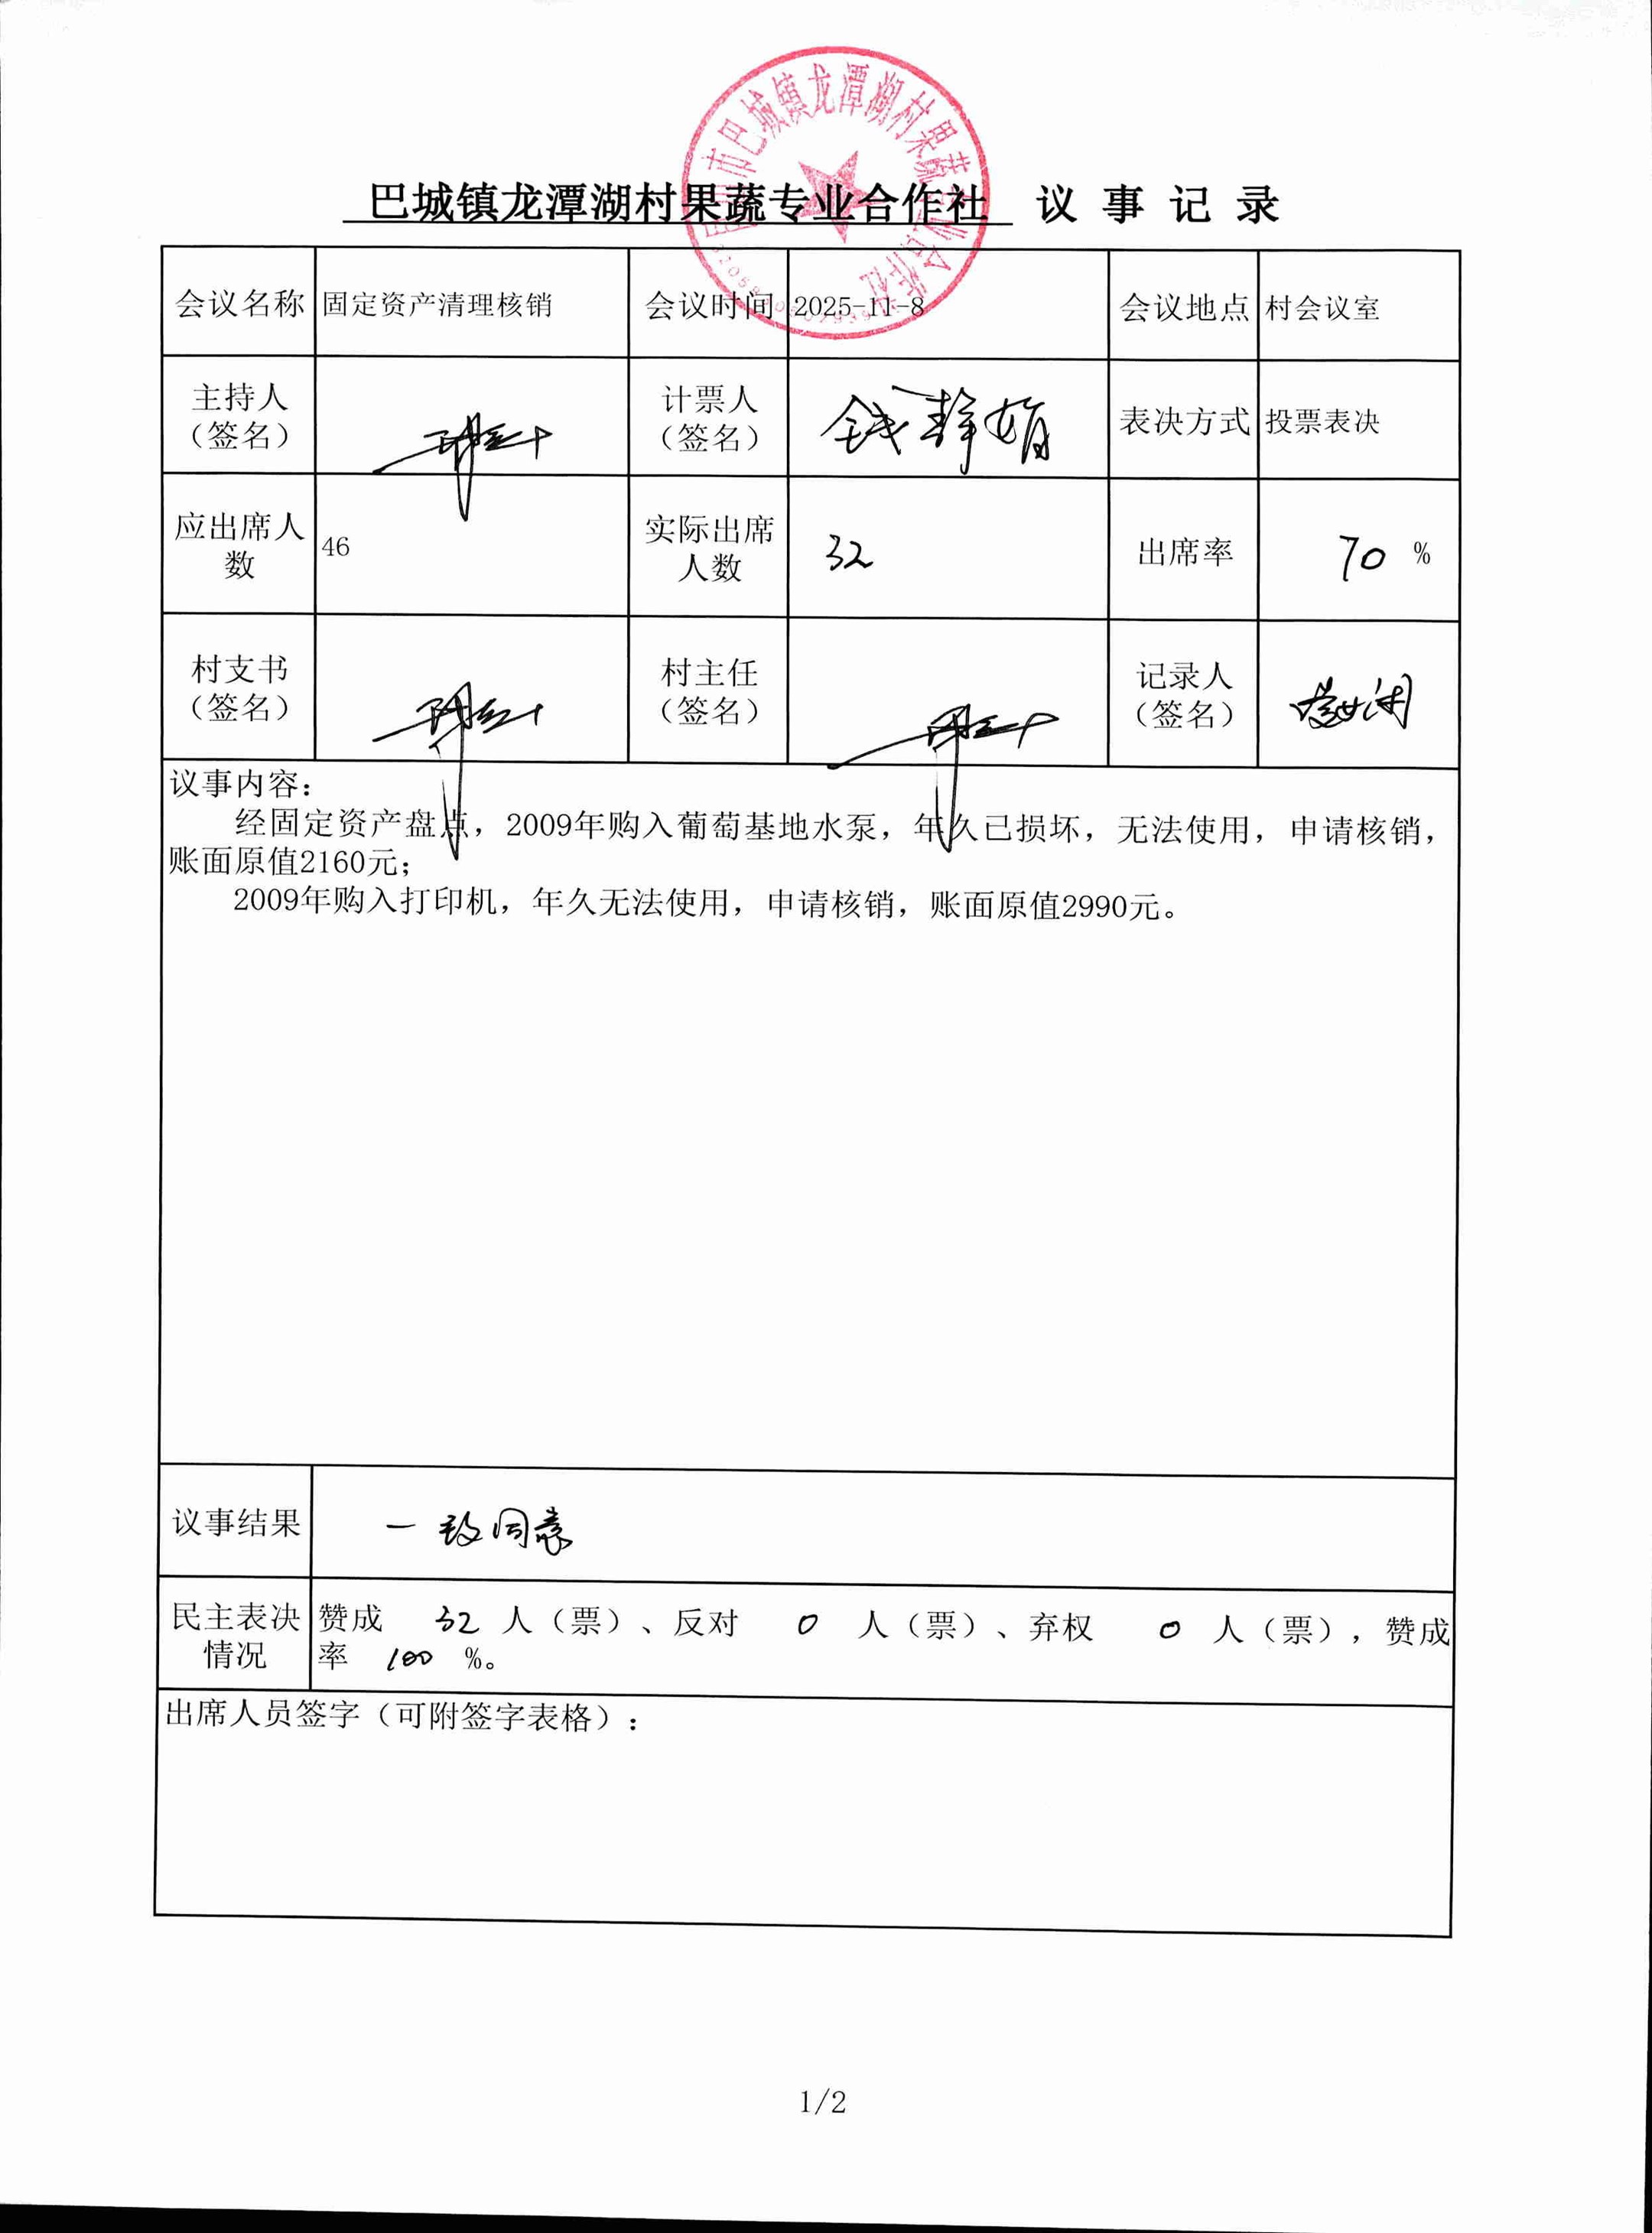 巴城镇龙潭湖村果蔬专业合作社 议事记录
会议名称 固定资产清理核销 会议时间 2025-11-8 会议地点 村会议室
主持人（签名） 计票人（签名） 钱静娟 表决方式 投票表决
应出席人数 46 实际出席人数 32 出席率 70 %
村支书（签名） 村主任（签名） 记录人（签名）
议事内容：
经固定资产盘点，2009年购入葡萄基地水泵，年久已损坏，无法使用，申请核销，
账面原值2160元；
2009年购入打印机，年久无法使用，申请核销，账面原值2990元。
议事结果 一致同意
民主表决情况 赞成 32 人（票）、反对 0 人（票）、弃权 0 人（票），赞成
率 100 %。
出席人员签字（可附签字表格）：
1/2